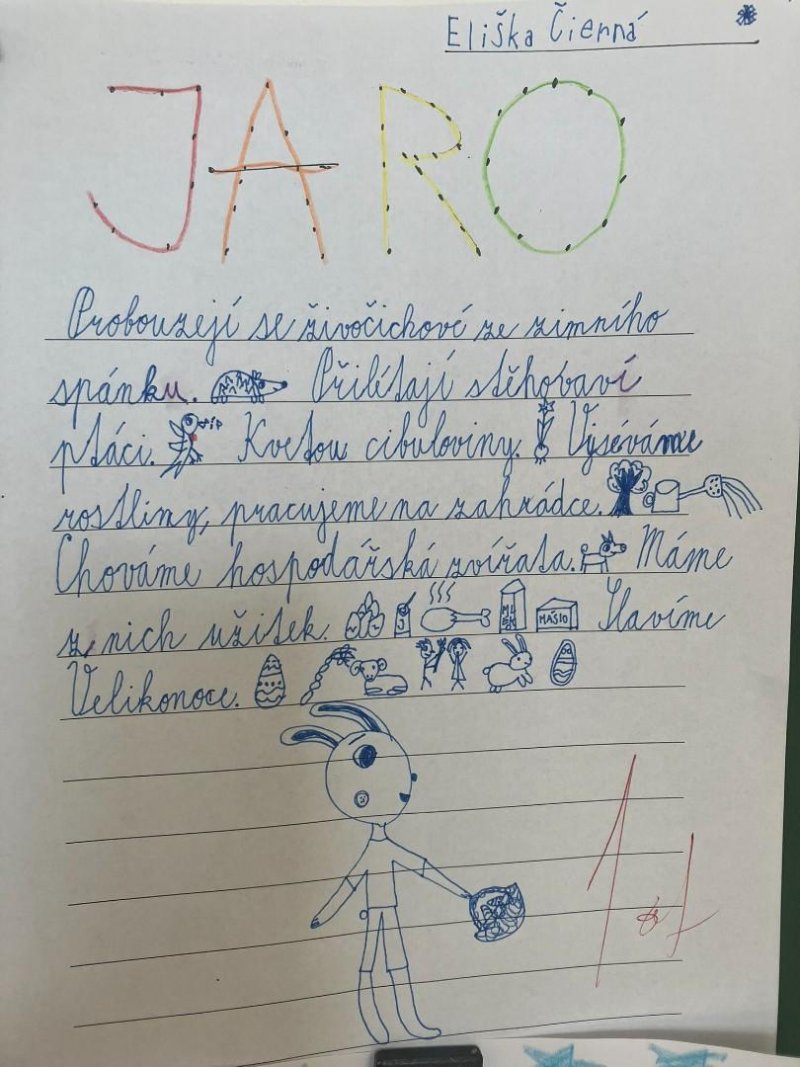 Eliška Čierná
JARO
Probouzejí se živočichové ze zimního
spánku. Přilétají stěhovaví
ptáci. Kvetou cibuloviny. Vyséváme
rostliny, pracujeme na zahrádce.
Chováme hospodářská zvířata. Máme
z nich užitek. MÁSLO Slavíme
Velikonoce.
1